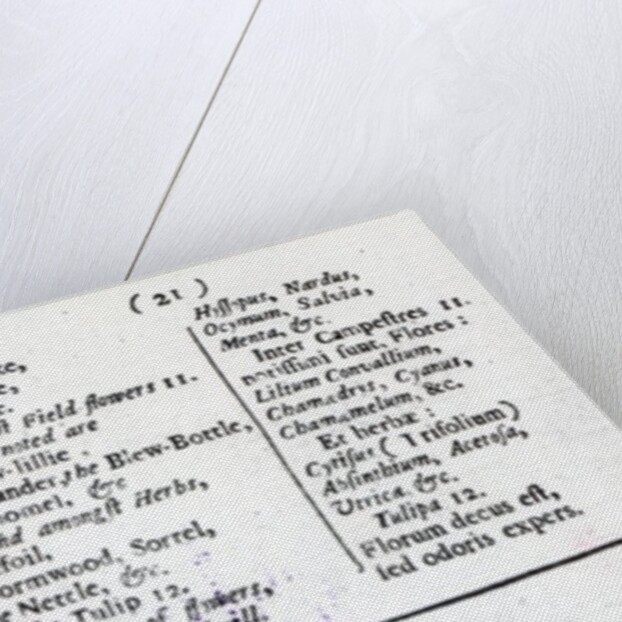 ( 21 )
ke,
e,
c.
st Field flowers 11.
nsted are
-lillie
ander, the Blew-Bottle,
nomel, &c
nd amongſt Herbs,
foil,
ormwood, Sorrel,
e Nettle, &c.
Tulip 12.
of flowers,
ll.
Hyſſopus, Nardus,
Ocymum, Salvia,
Menta, &c.
Inter Campeſtres 11.
notiſſimi ſunt, Flores :
Lilium Convallium,
Chamædrys, Cyanus,
Chamæmelum, &c.
Et herbæ :
Cytiſus ( Trifolium)
Abſinthium, Acetoſa,
Urtica, &c.
Tulipa 12.
Florum decus eſt,
ſed odoris expers.